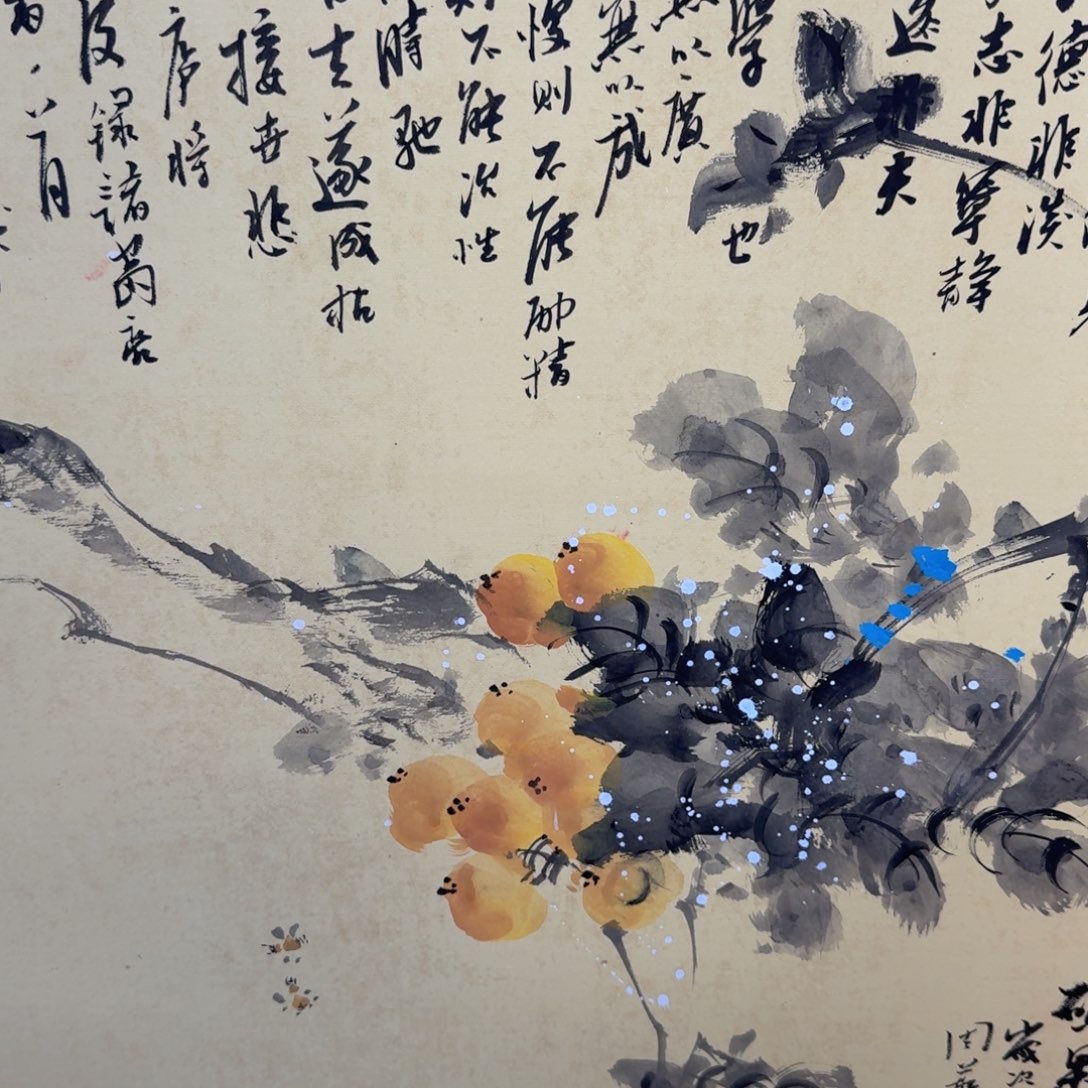 德非淡
志非寧靜
夫
學也
無以廣
無以成
慢則不能勵精
則不能冶性
時馳
去遂成枯
接世悲
廬將
錄諸葛亮
月
碩果
歲次
周